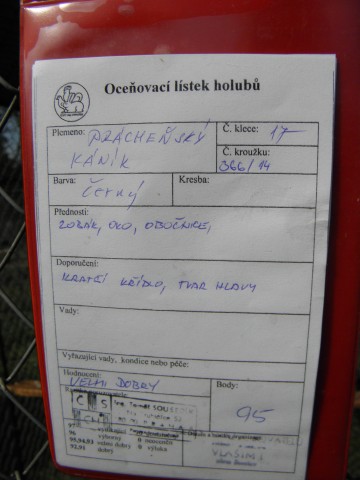 Oceňovací lístek holubů
Plemeno: PRÁCHEŇSKÝ
KÁNÍK
Č. klece: 17
Č. kroužku:
366/14
Barva:
ČERNÝ
Kresba:
Přednosti:
ZOBÁK, OKO, OBOČNICE,
Doporučení:
KRATŠÍ KŘÍDLO, TVAR HLAVY
Vady:
Vyřazující vady, kondice nebo péče:
Hodnocení:
VELMI DOBRÝ
Body:
95
C S
CH
Ing. Tomáš
96 výborný 0
95,94,93 velmi dobrý 0 výluka
92,91 dobrý